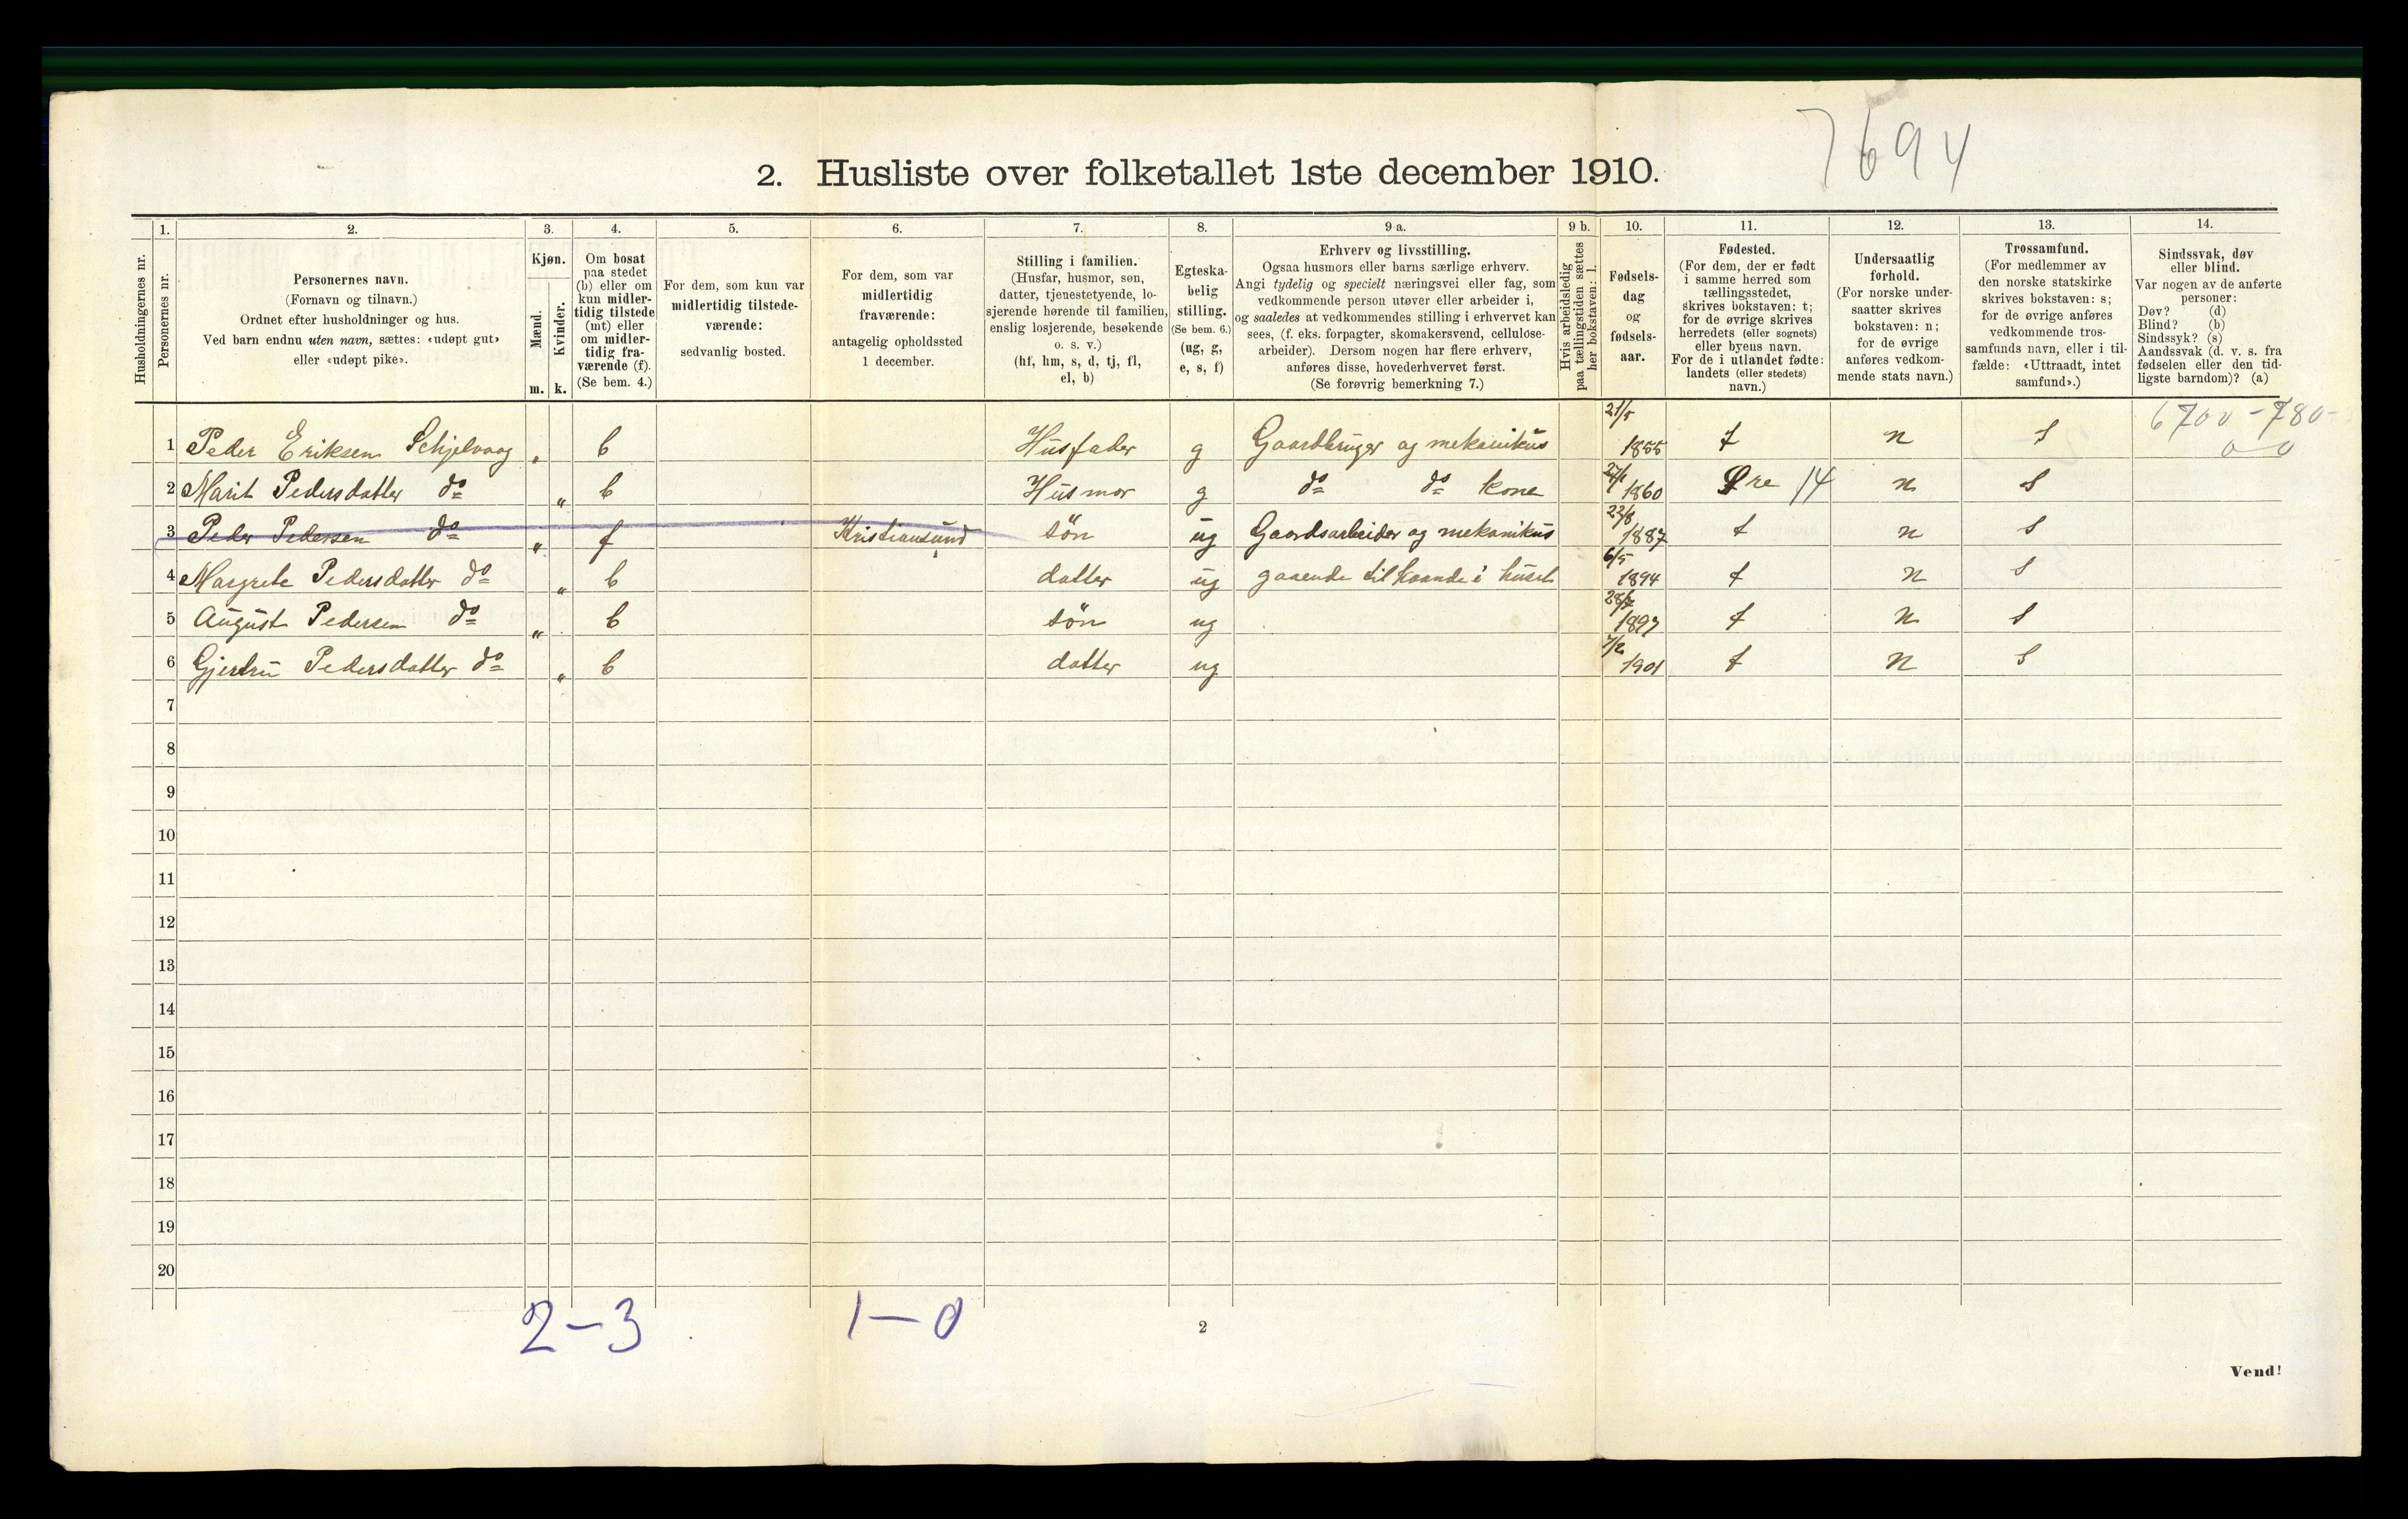 7694
2. Husliste over folketallet 1ste december 1910.
Husholdningernes nr.
1.
Personernes nr.
2.
Personernes navn.
(Fornavn og tilnavn.)
Ordnet efter husholdninger og hus.
Ved barn endnu uten navn, sættes: «udøpt gut»
eller «udøpt pike».
3.
Kjøn.
Mænd.
m.
Kvinder.
k.
4.
Om bosat
paa stedet
(b) eller om
kun midler-
tidig tilstede
(mt) eller
om midler-
tidig fra-
værende (f).
(Se bem. 4.)
5.
For dem, som kun var
midlertidig tilstede-
værende:
sedvanlig bosted.
6.
For dem, som var
midlertidig
fraværende:
antagelig opholdssted
1 december.
7.
Stilling i familien.
(Husfar, husmor, søn,
datter, tjenestetyende, lo-
sjerende hørende til familien,
enslig losjerende, besøkende
o. s. v.)
(hf, hm, s, d, tj, fl,
el, b)
8.
Egteska-
belig
stilling.
(Se bem. 6.)
(ug, g,
e, s, f)
9 a.
Erhverv og livsstilling.
Ogsaa husmors eller barns særlige erhverv.
Angi tydelig og specielt næringsvei eller fag, som
vedkommende person utøver eller arbeider i,
og saaledes at vedkommendes stilling i erhvervet kan
sees, (f. eks. forpagter, skomakersvend, cellulose-
arbeider). Dersom nogen har flere erhverv,
anføres disse, hovederhvervet først.
(Se forøvrig bemerkning 7.)
9 b.
Hvis arbeidsledig
paa tællingstiden sættes
her bokstaven: l.
10.
Fødsels-
dag
og
fødsels-
aar.
11.
Fødested.
(For dem, der er født
i samme herred som
tællingsstedet,
skrives bokstaven: t;
for de øvrige skrives
herredets (eller sognets)
eller byens navn.
For de i utlandet fødte:
landets (eller stedets)
navn.)
12.
Undersaatlig
forhold.
(For norske under-
saatter skrives
bokstaven: n;
for de øvrige
anføres vedkom-
mende stats navn.)
13.
Trossamfund.
(For medlemmer av
den norske statskirke
skrives bokstaven: s;
for de øvrige anføres
vedkommende tros-
samfunds navn, eller i til-
fælde: «Uttraadt, intet
samfund».)
14.
Sindssvak, døv
eller blind.
Var nogen av de anførte
personer:
Døv? (d)
Blind? (b)
Sindssyk? (s)
Aandssvak (d. v. s. fra
fødselen eller den tid-
ligste barndom)? (a)
6700 - 780 -
0 0
1 Peder Eriksen Schjelvaag „ b Husfader g Gaardbruger og mekanikus 21/5 1855 t n s
2 Marit Pedersdatter do „ b Husmor g do do kone 27/1 1860 Øre 14 n s
3 Peder Pedersen do „ f Kristiansund søn ug Gaardsarbeider og mekanikus 22/8 1887 t n s
4 Margrete Pedersdatter do „ b datter ug gaaende til haande i huset 6/5 1894 t n s
5 August Pedersen do „ b søn ug 1897 t n s
6 Gjertru Pedersdatter do „ b datter ug 7/2 1901 t n s
7
8
9
10
11
12
13
14
15
16
17
18
19
20
2-3 1-0
2
Vend!